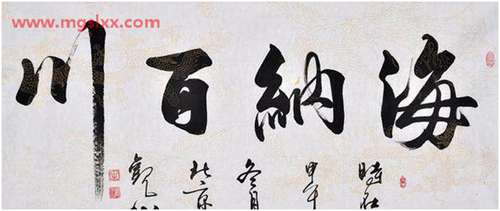 www.mgslxx.com
海納百川
時在
甲午
冬月
北京